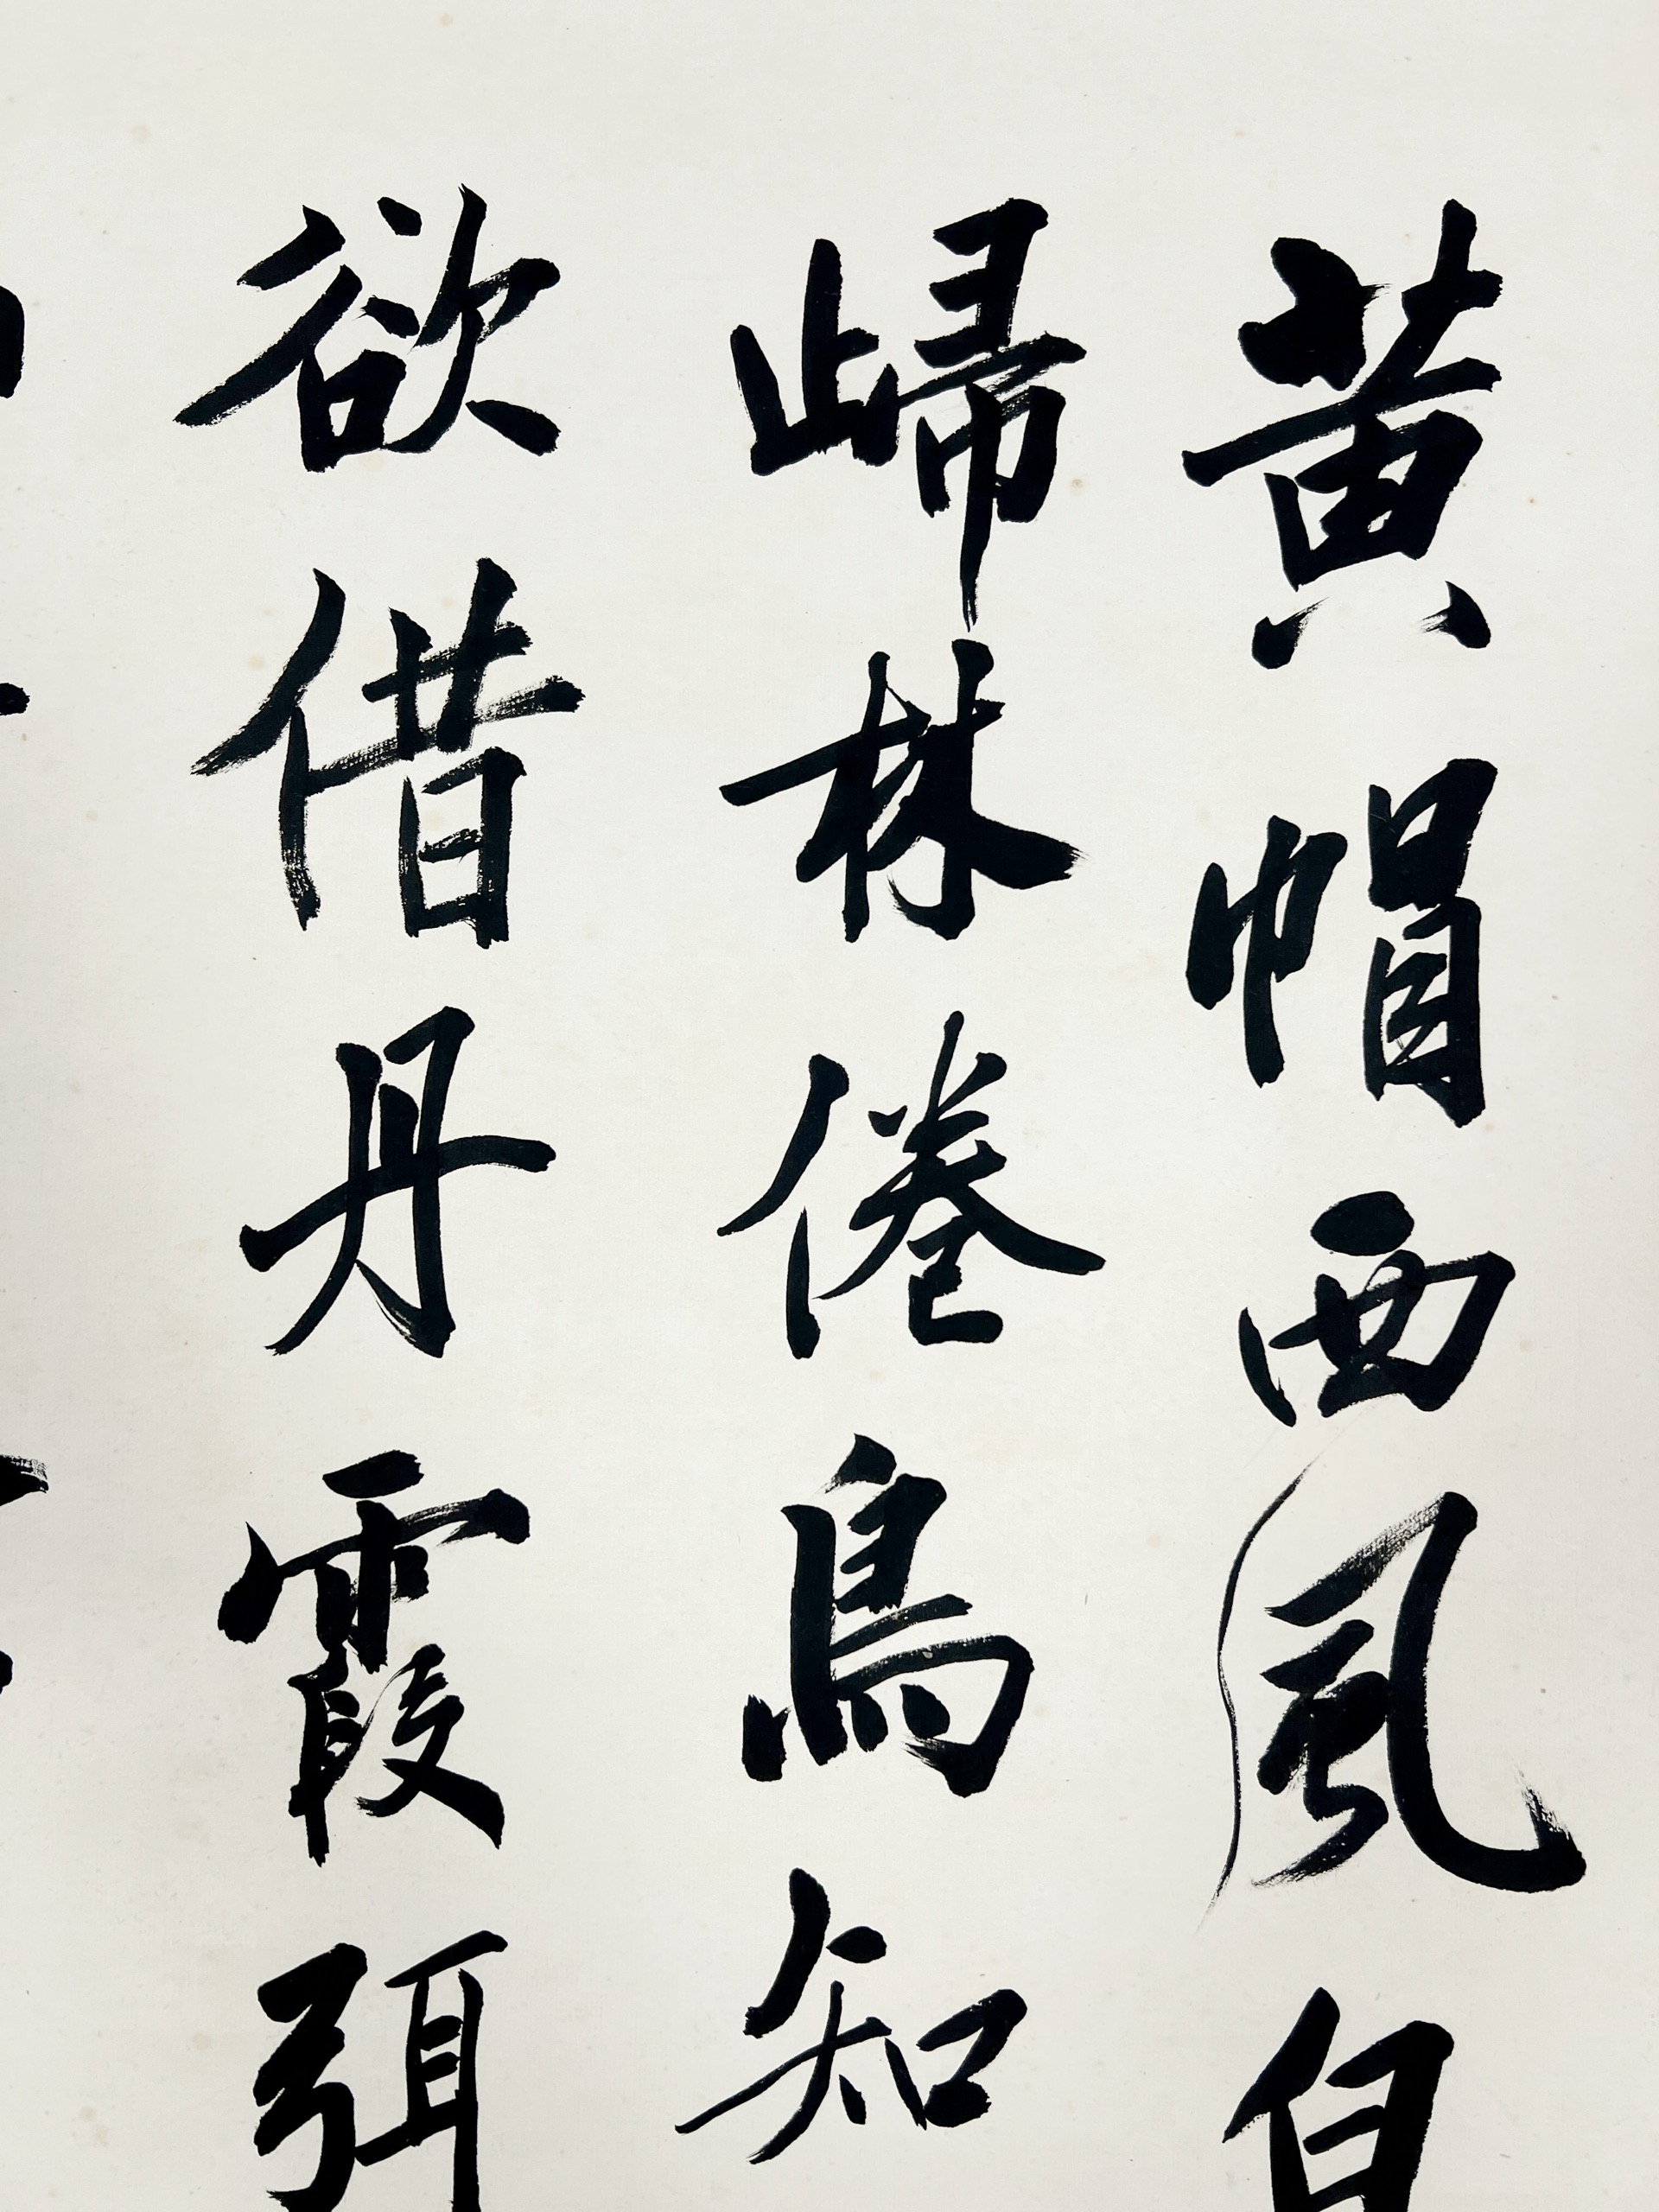 黄帽西風白
歸林倦鳥知
欲借丹霞弭